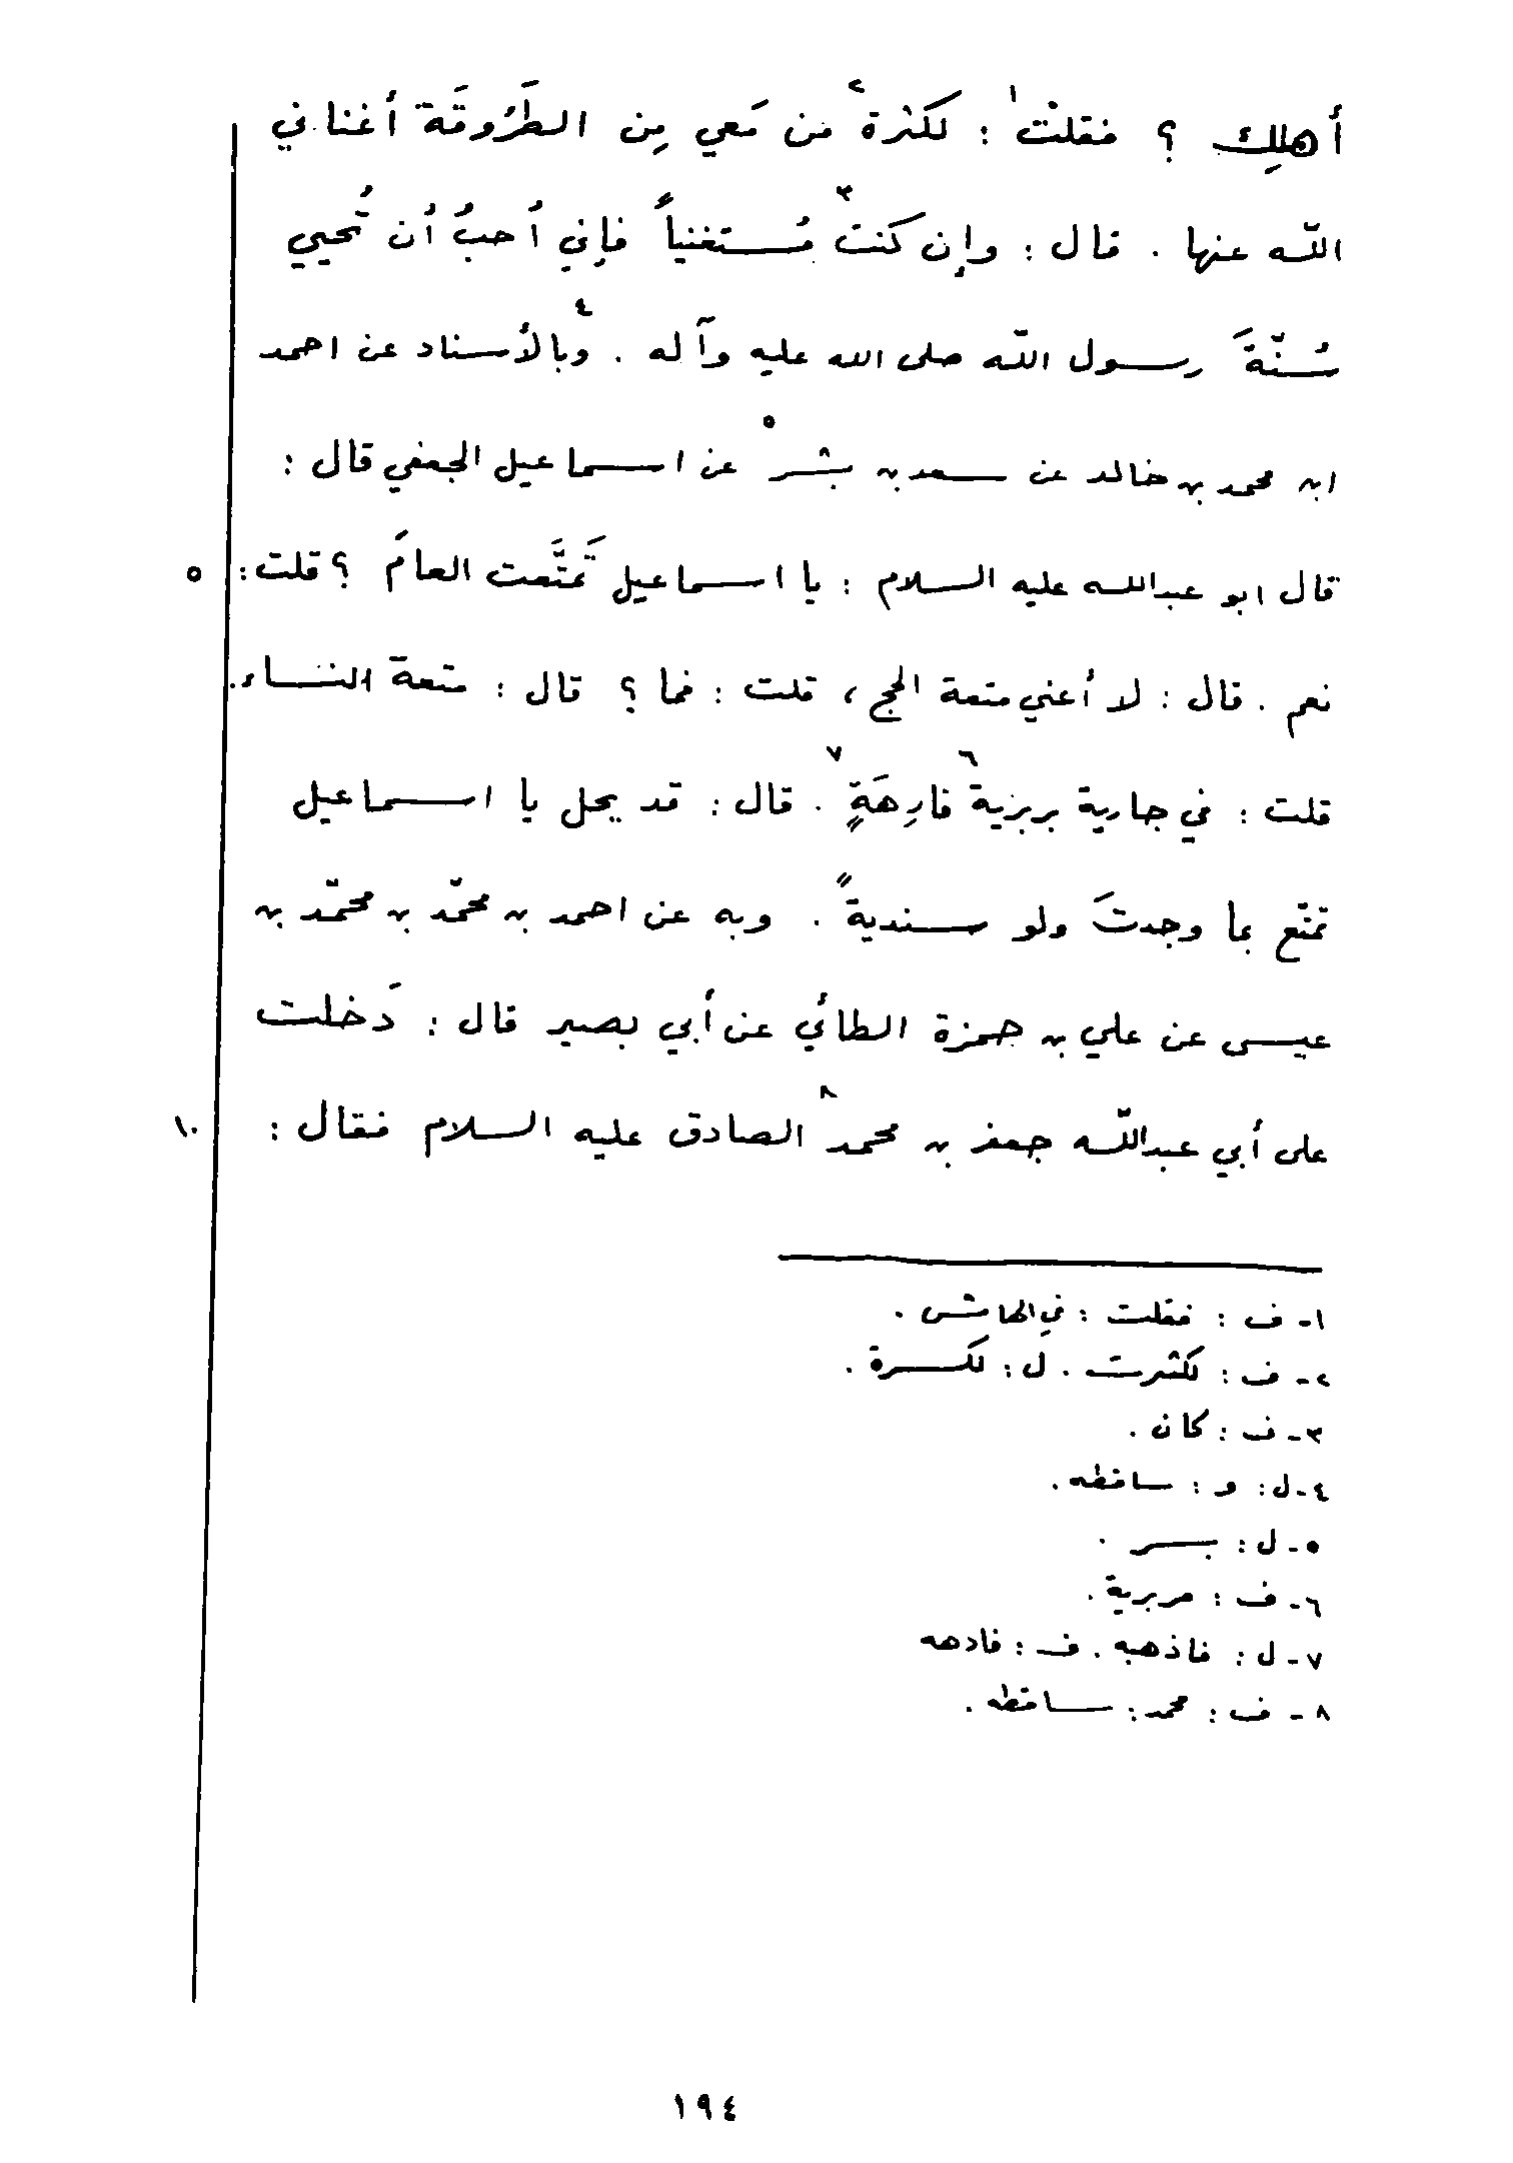 أهلِك ؟ فقلتُ١ : لكثرة٢ من مَعي مِن الطَرُوقَة أغناني
الله عنها . قال : وإن كنت٣ مُستغنياً فإني أُحبُ أن تُحيي
سُنّةَ رسول الله صلى الله عليه وآله . وبالأسناد٤ عن احمد
ابن محمد بن خالد عن سعد بن بشر٥ عن اسماعيل الجعفي قال :
قال ابو عبدالله عليه السلام : يا اسماعيل تَمتَّعت العامَ ؟ قلت : ٥
نعم . قال : لا أعني متعة الحج ، قلت : فما ؟ قال : متعة النساء .
قلت : في جارية بربرية٦ فارِهَةٍ٧ . قال : قد يحل يا اسماعيل
تمتّع بما وجدتَ ولو سنديةً . وبه عن احمد بن محمّد بن محمّد بن
عيسى عن علي بن حمزة الطائي عن أبي بصير قال : دَخلت
على أبي عبدالله جعفر بن محمد٨ الصادق عليه السلام فقال : ١٠
١- ف : فقلت : في الهامش .
٢- ف : لكثرت . ل : لكسرة .
٣- ف : كان .
٤- ل : و : ساقطه .
٥- ل : بسر .
٦- ف : مربرية .
٧- ل : فاذهبه . ف : فادهه
٨- ف : محمد : ساقطه .
١٩٤